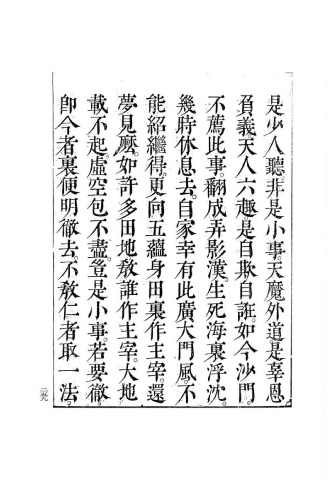 是少人聽非是小事。天魔外道是辜恩
負義。天人六趣。是自欺自誑。如今沙門
不薦此事。翻成弄影漢。生死海裏浮沈。
幾時休息去。自家幸有此廣大門風。不
能紹繼得。更向五蘊身田裏作主宰。還
夢見麼。如許多田地。敎誰作主宰。大地
載不起。虛空包不盡。豈是小事。若要徹。
卽今者裏便明徹去。不敎仁者取一法。